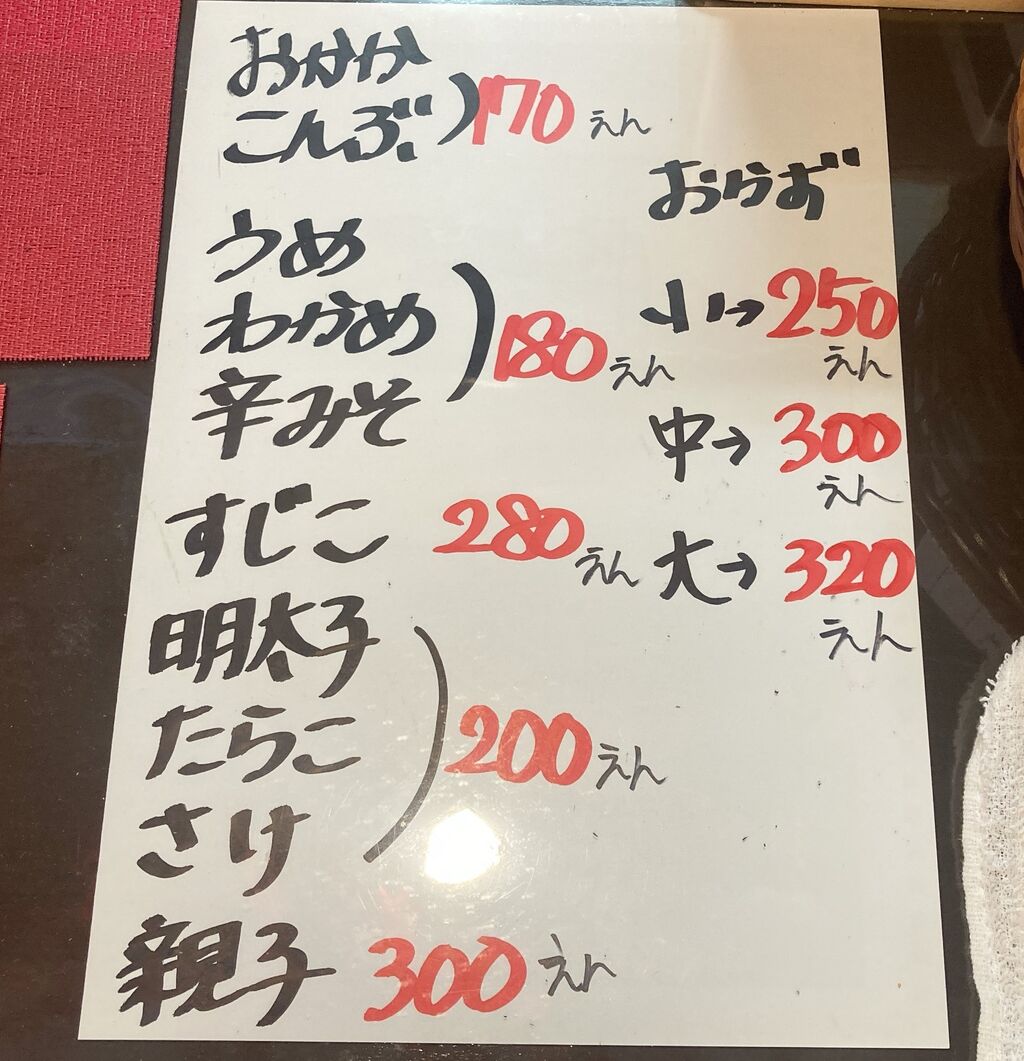 おかか
こんぶ
170えん
うめ
わかめ
辛みそ
180えん
すじこ 280えん
明太子
たらこ
さけ
200えん
親子 300えん
おらず
小→250えん
中→300えん
大→320えん